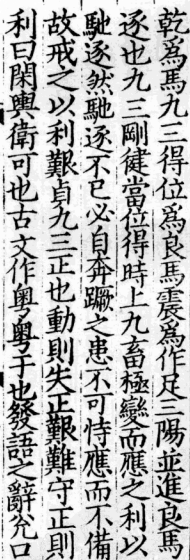 乾為馬九三得位為良馬震為作足三陽並進良馬
逐也九三剛健當位得時上九畜極變而應之利以
馳逐然馳逐不已必自奔蹶之患不可恃應而不備
故戒之以利艱貞九三正也動則失正艱難守正則
利曰閑輿衛可也古文作粤粤于也發語之辭兊口